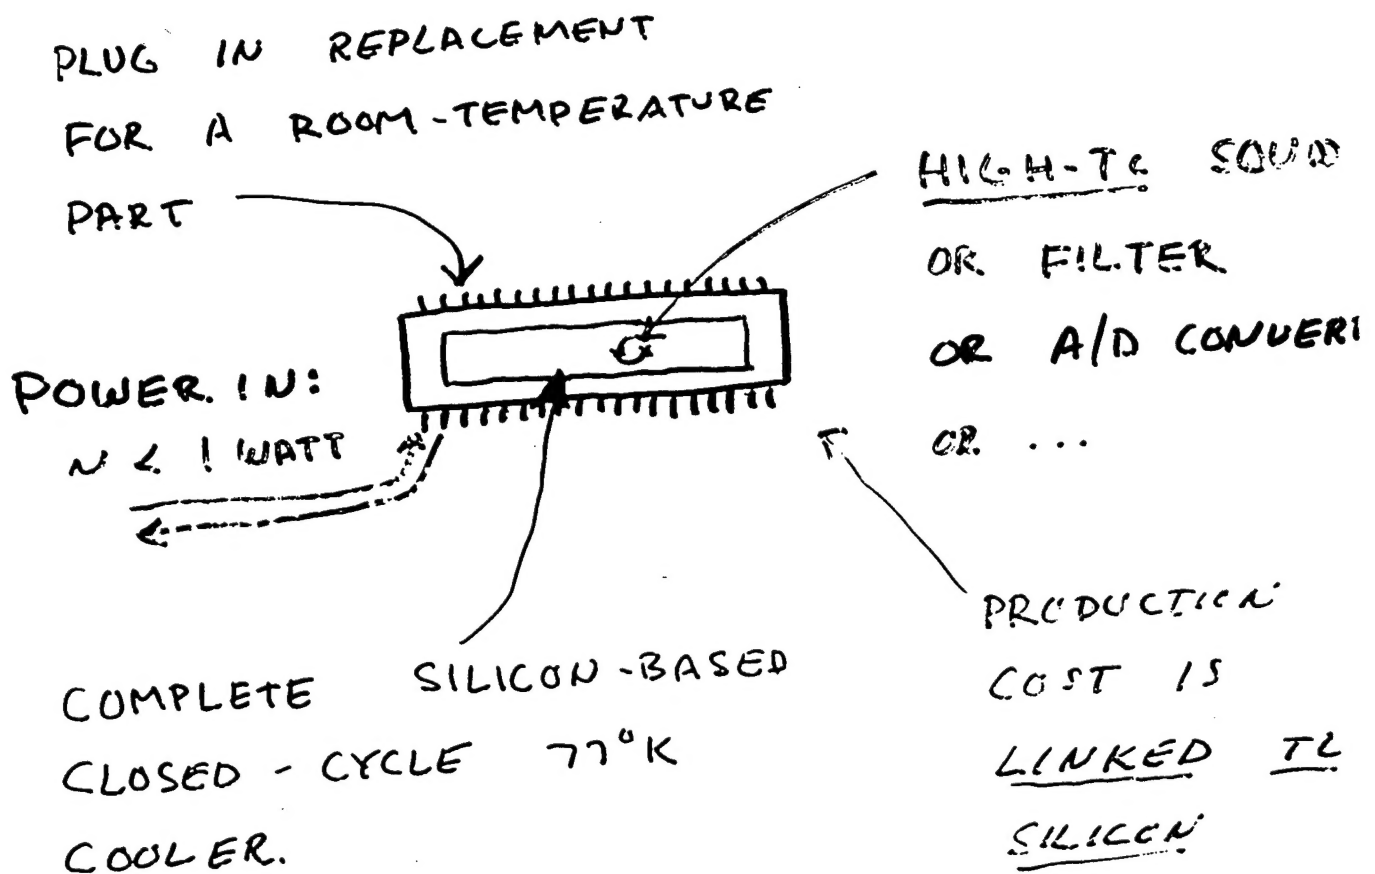 PLUG IN REPLACEMENT
FOR A ROOM-TEMPERATURE
PART
HIGH-TC SQUID
OR FILTER
OR A/D CONVERT
OR ...
POWER IN:
N < 1 WATT
COMPLETE SILICON-BASED
CLOSED-CYCLE 77°K
COOLER.
PRODUCTION
COST IS
LINKED TO
SILICON